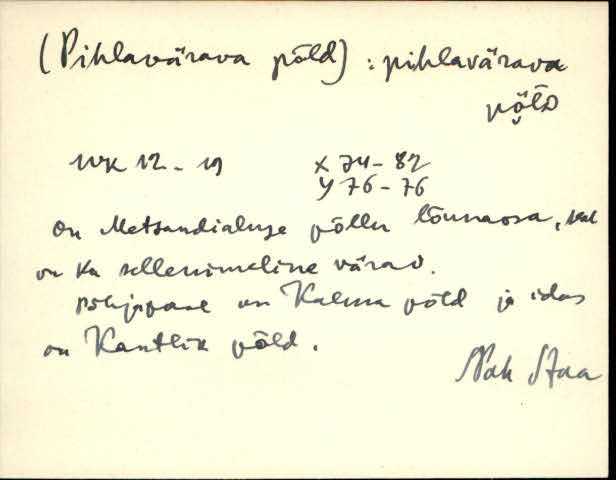 (Pihlavärava põld) : pihlavärava
põlD
WK 12-19 X 74-82
Y 76-76
On Metsandialuse põllu lõunaosa, kus
on ka sellenimeline värav.
Põhjapool on Kalma põld ja idas
on Kantlik põld.